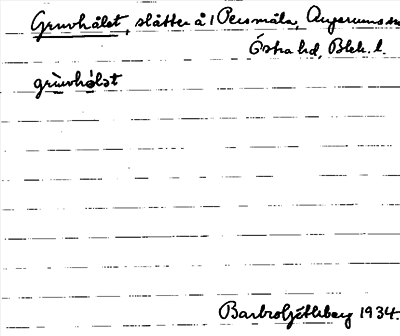 Gruvhålet, slåtter å 1 Persmåla, Augerums sn
Östra hd, Blek. l.
grùvhó̀lət
Barbro Göthberg 1934.